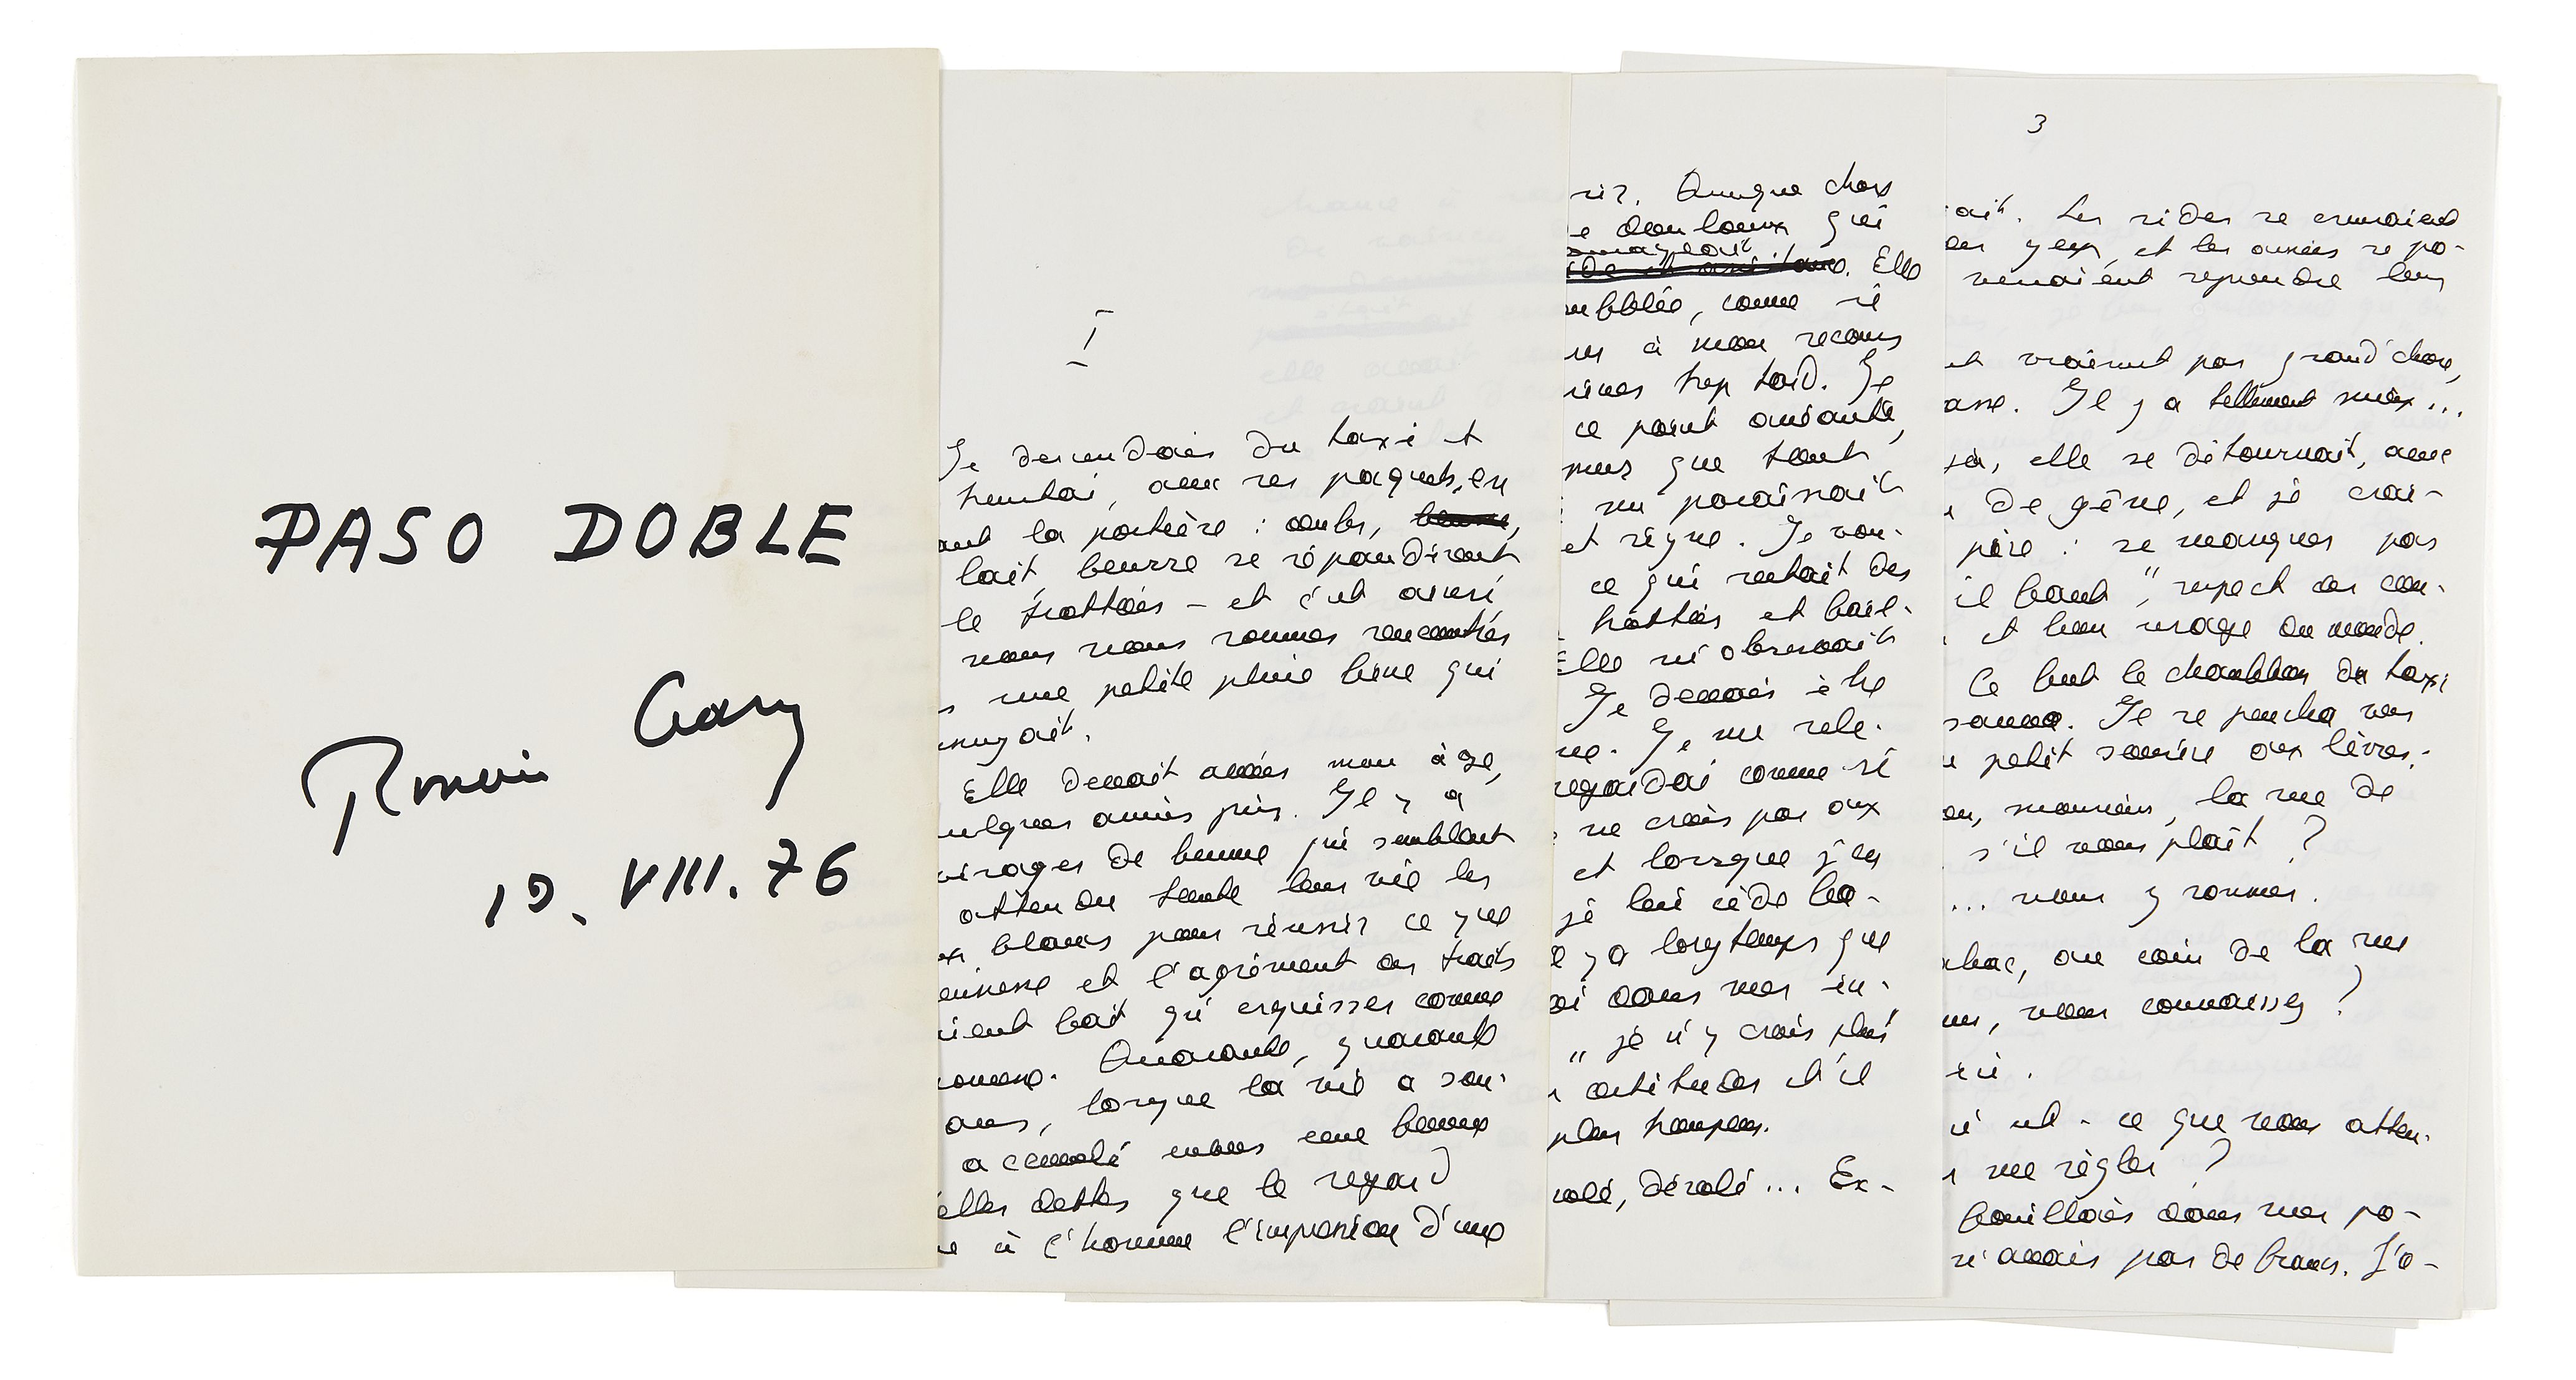 PASO DOBLE
Romain Gary
10. VIII. 76
I
Je descendais du taxi et
heurtai, avec ses paquets, en
ant la portière : oeufs, beurre,
lait, beurre se répandirent
le trottoir – et c'est ainsi
nous nous sommes rencontrés
s une petite pluie fine qui
nuyait.
Elle devait avoir mon âge,
uelques années près. Il y a
visages de femme qui semblent
attendu toute leur vie les
x blancs pour réussir ce que
eunesse et l'agrément des traits
aient fait qu'esquisser comme
omesse. Quarante, quarante
ans, lorsque la vie a sou-
a cumulé envers une femme
elles dettes que le regard
ne à l'homme l'impression d'une
rir. Quelque chose
e douloureux qui
Elle
oubliée, comme si
us à mon secours
ines trop tard. Je
ce point
mes que tout
me paraissait
et signe. Je vou-
ce qui restait des
trottoir et fail-
Elle m'observait
Je devais être
ne. Je me rele-
regardai comme si
ne crois pas aux
et lorsque j'en
je lui cède
l y a longtemps que
ai dans mes in-
" je n'y crois plus
attitudes et il
plus trompeur.
solé, désolé... Ex-
3
ait. Les rides se creusaient
des yeux, et les années se po-
venaient reprendre leur
et vraiment pas grand'chose,
asse. Il y a tellement mieux...
jà, elle se détournait, avec
u de gêne, et je crai-
pire : se manquer par
il faut ", respect des con-
et bon usage du monde.
Ce fut le chauffeur du taxi
sauva. Il se pencha vers
n petit sourire aux lèvres.
on, monsieur, la rue de
s'il vous plaît ?
... nous y sommes.
abac, au coin de la rue
us, vous connaissez ?
ri.
i est-ce que vous atten-
r me régler ?
fouillais dans mes po-
n'avais pas de francs. J'a-